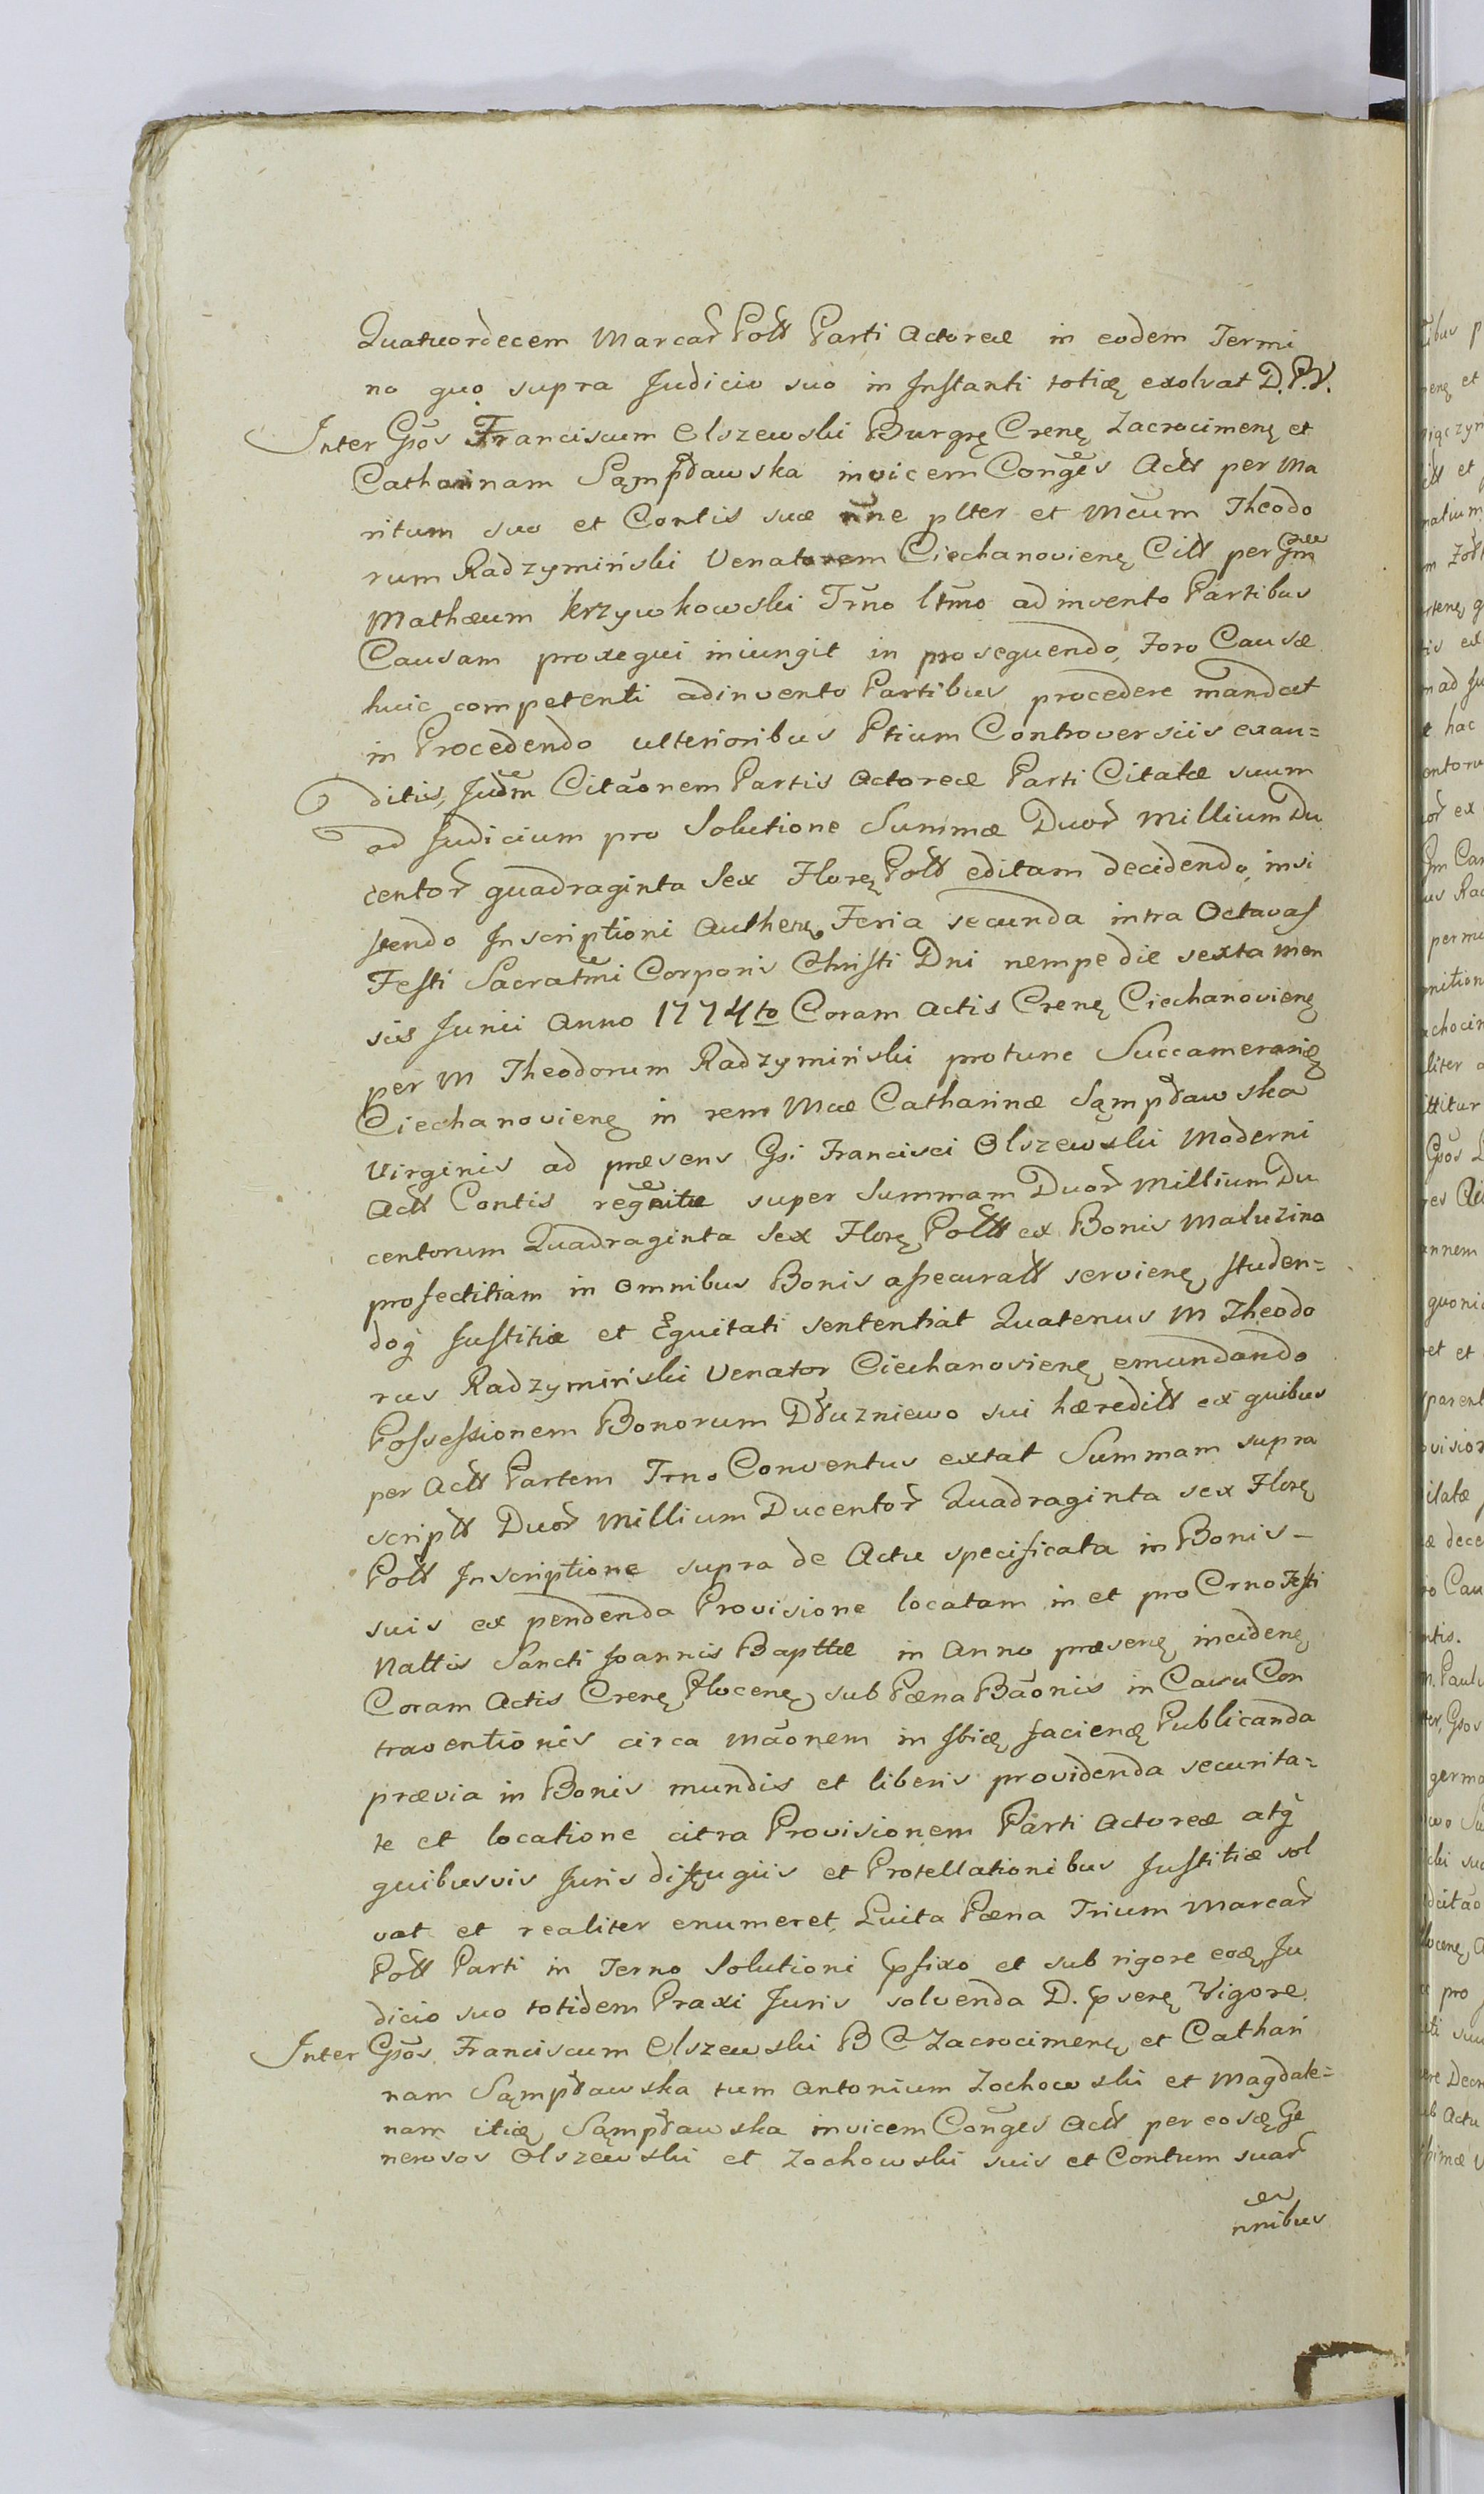 Quatuordecem Marcar Poll Parti Actoreæ in eodem Termi
no quo supra Judicio suo in Instanti totię exolvat D.P.V.
Inter Gsos Franciscum Olszewski Burgrę Crenę Zacrocimenę et
Catharinam Sąmpławska invicem Conges Actt per Ma
ritum suo et Contis suæ nne plter et Mcum Theodo
rum Radzyminski Venatorem Ciechanovienę Citt per Gm
Mathæum Krzywkowski Trno ltmo adinvento Partibus
Causam proxequi iniungit in prosequendo, Foro Causæ
huic competenti adinvento Partibus procedere mandat
in Procedendo ulterioribus Ptium Controversiis exau=
ditis, Judm Citaonem Partis Actoreæ Parti Citatæ suum
ad Judicium pro Solutione Summæ Duor Millium Du
centor quadraginta Sex Florę Poll editam decidendo, insi
stendo Inscriptioni Authenę Feria secunda intra Octavas
Festi Sacratmi Corporis Christi Dni nempe die sexta Men
sis Junii Anno 1774to Coram Actis Crenę Ciechanovienę
per M Theodorum Radzyminski protunc Succamerarię
Ciechanovienę in rem Mæ Catharinæ Sąmpławska
Virginis ad præsens Gsi Francisci Olszewski Moderni
Actt Contis regnitæ super Summam Duor Millium Du
centorum Quadraginta Sex Florę Polll ex Bonis Maluzino
profectitiam in omnibus Bonis assecuratt servienę, studen=
doq Justitiæ et Equitati sententiat Quatenus M Theodo
rus Radzyminski Venator Ciechanovienę, emundando
Possessionem Bonorum Dłuzniewo sui hæreditt ex quibus
per Actt Partem Trno Conventus extat Summam supra
scriptt Duor Millium Ducentor Quadraginta sex Florę
Poll Inscriptione supra de Actu specificata in Bonis -
suis ex pendenda Provisione locatam in et pro Crno Festi
Nattis Sancti Joannis Bapttæ in Anno præsenę incidenę
Coram Actis Crenę Plocenę, sub Pæna Baonis in Casu Con
traventionis circa Maonem in sbię facienę Publicanda
prævia in Bonis mundis et liberis providenda securita=
te et locatione citra Provisionem Parti Actoreæ atq
quibusvis Juris diffugiis et Protellationibus Justitiæ sol
vat et realiter enumeret, Luita Pæna Trium Marcar
Poll Parti in Terno Solutioni pfixo et sub rigore eoę Ju
dicio suo totidem Praxi Juris solvenda D. psenę Vigore.
Inter Gsos Franciscum Olszewski B C Zacrocimenę et Cathari
nam Sąmpławska tum Antonium Zochowski et Magdale=
nam itię Sąmpławska invicem Conges Actt per eosę Ge
nerosos Olszewski et Zochowski suis et Contum suar
nnibus